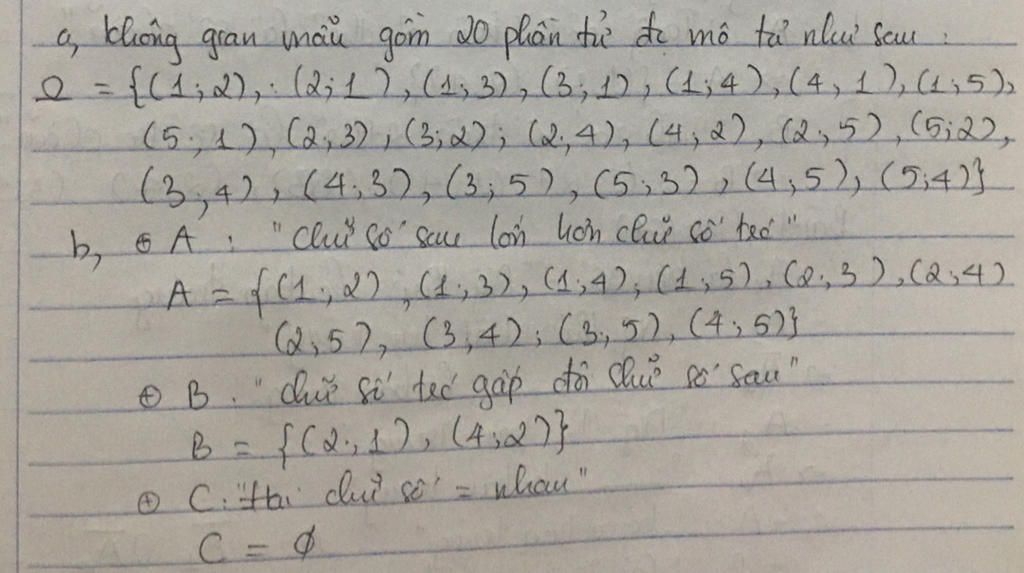 a, Không gian mẫu gồm 20 phần tử đc mô tả như sau :
Ω = {(1;2), (2;1), (1;3), (3;1), (1;4), (4,1), (1;5),
(5;1), (2;3), (3;2); (2;4), (4;2), (2;5), (5;2),
(3;4), (4;3), (3;5), (5;3), (4;5), (5;4)}
b, ⊕ A : "Chữ số sau lớn hơn chữ số trc"
A = {(1;2), (1;3), (1;4), (1;5), (2;3), (2;4)
(2,5), (3;4); (3;5), (4;5)}
⊕ B. "chữ số trc gấp đôi chữ số sau"
B = {(2;1), (4;2)}
⊕ C: "Hai chữ số = nhau"
C = ∅